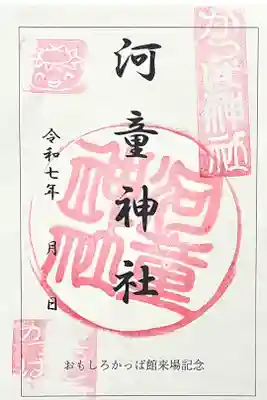 かっぱ神社
河童神社
河童神社
令和七年　月　日
かっぱ
おもしろかっぱ館来場記念